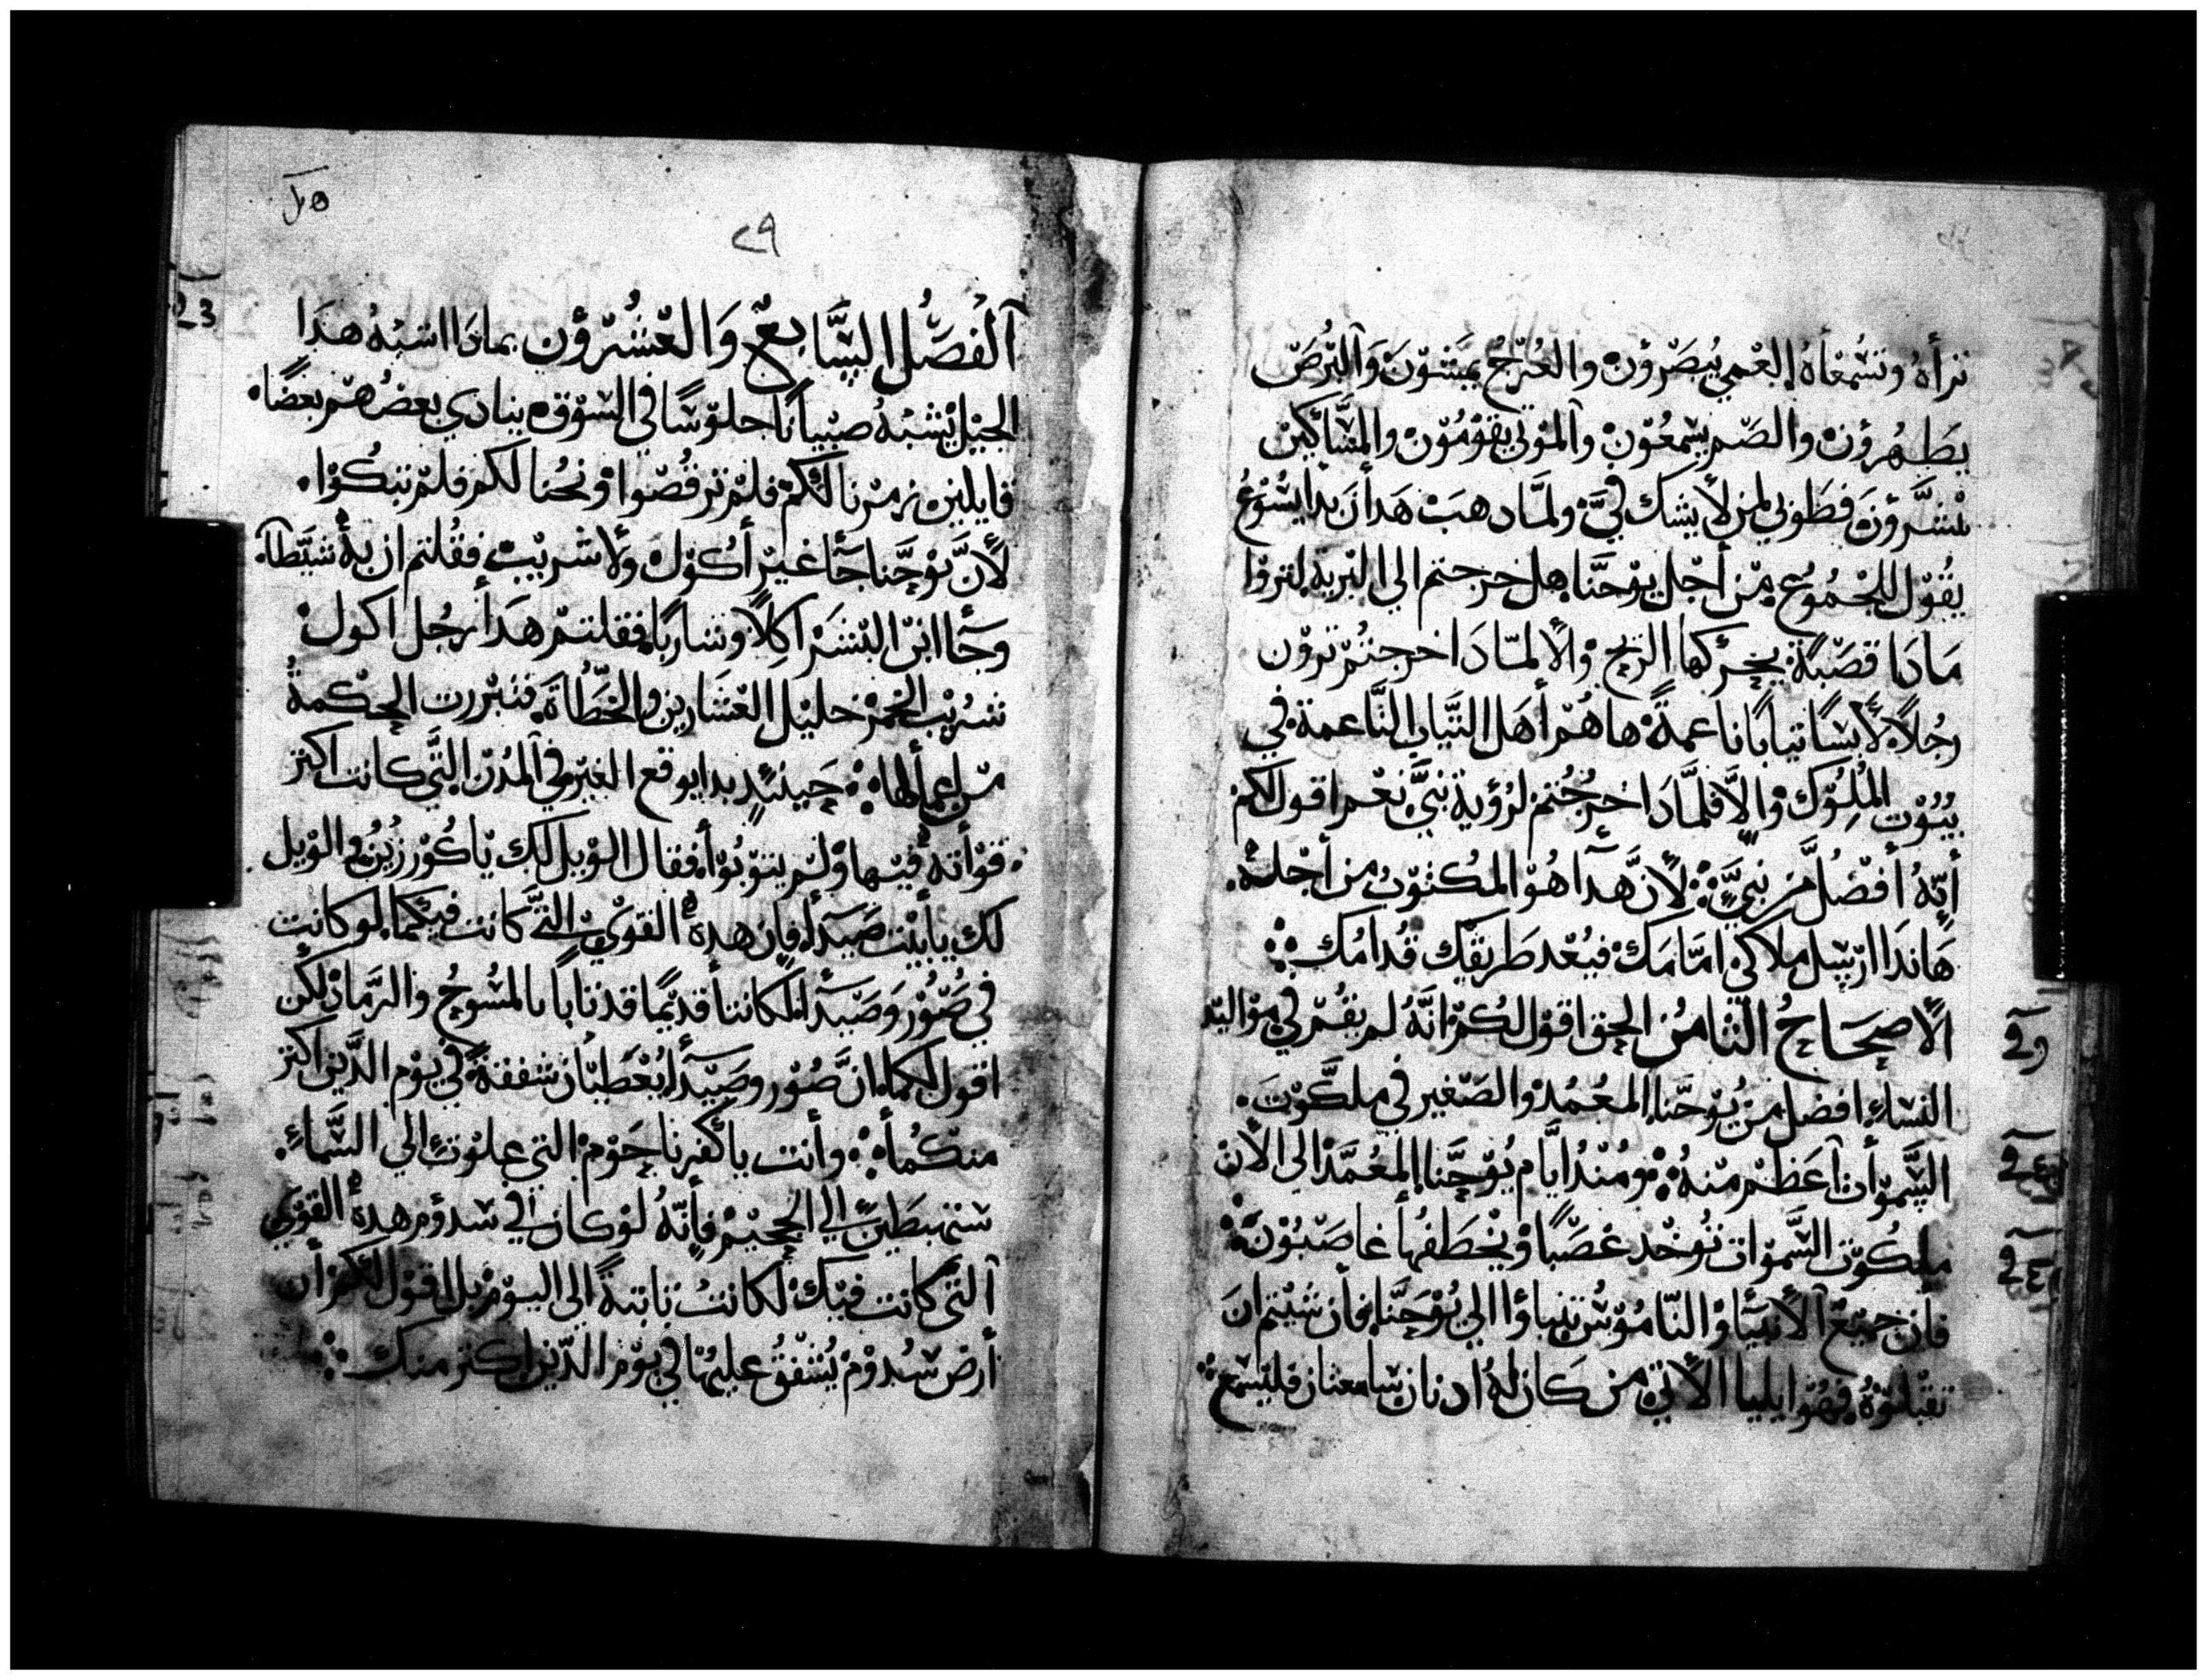 ترأه وتسمعأه العمي يبصرون والعرج يمشون والبرص
يطهرون والصم يسمعون والموتي يقومون والمساكين
يبشرون فطوبي لمن لا يشك في ولما دهب هدأن بدا يسوع
يقول للجموع من أجل يوحنا هل خرجتم الي البرية لتروا
مادا قصبة يحركها الريح والا لمادا خرجتم ترون
رجلا لابسا تيابا ناعمة ها هم أهل التياب الناعمة في
بيوت الملوك والا فلمادا خرجتم لرؤية نبي نعم اقول لكم
أنه أفضل من نبي لأن هدا هو المكتوب من أجله
هاندا ارسل ملاكي امامك فيعد طريقك قدامك
الاصحاح التامن الحق اقول لكم انه لم يقم في مواليد
النساء افضل من يوحنا المعمد والصغير في ملكوت
السموأت أعظم منه ومند ايام يوحنا المعمد الي الان
ملكوت السموات توخد غصبا ويخطفها غاصبون
فأن جميع الأنبيا والناموس تنباوا الي يوحنا فأن شيتم ان
تقبلوه فهو ايليا الاتي من كان له ادنان سامعتان فليسمع
٢٩
الفصل السابع والعشرون بمادا اشبه هدا
الجيل يشبه صبيانا جلوسا في السوق ينادي بعضهم بعضا
قايلين زمرنا لكم فلم ترقصوا ونحنا لكم فلم تبكوا
لأن يوحنا جأ غير أكول ولا شريب فقلتم ان به شيطاً
وجأ ابن البشر اكلا وشاربا فقلتم هدأ رجل اكول
شريب الخمر خليل العشارين والخطأة فتبررت الحكمة
من اعمالها حينئد بدا يوقع الغير في المدن التي كانت اكتر
قوأته فيها ولم يتوبوا فقال الويل لك يا كورزين والويل
لك يا بيت صيدا فان هده القوي التي كانت فيكما لو كانت
في صور وصيدا لكانتا قديما قد تابا بالمسوح والرماد لكن
اقول لكما ان صور وصيدأ يعطيان شفقة في يوم الدين اكتر
منكمأ وأنت يا كفرناحوم التي علوت الي السماء
ستهبطين الي الجحيم فأنه لو كان في سدوم هده القوي
التي كانت فيك لكانت تابتة الي اليوم بل اقول لكم أن
أرض سدوم يشفق عليها في يوم الدين اكتر منك